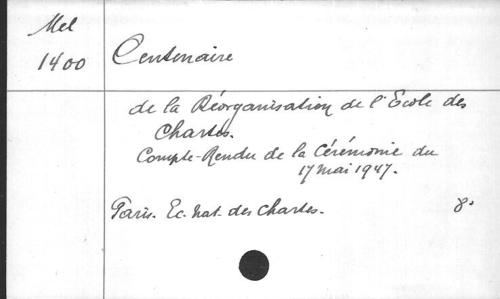 Mel
1400
Centenaire
de la Réorganisation de l'Ecole des
Chartes.
Compte-Rendu de la Cérémonie du
17 mai 1947.
Paris. Ec. Nat. des Chartes. 8°